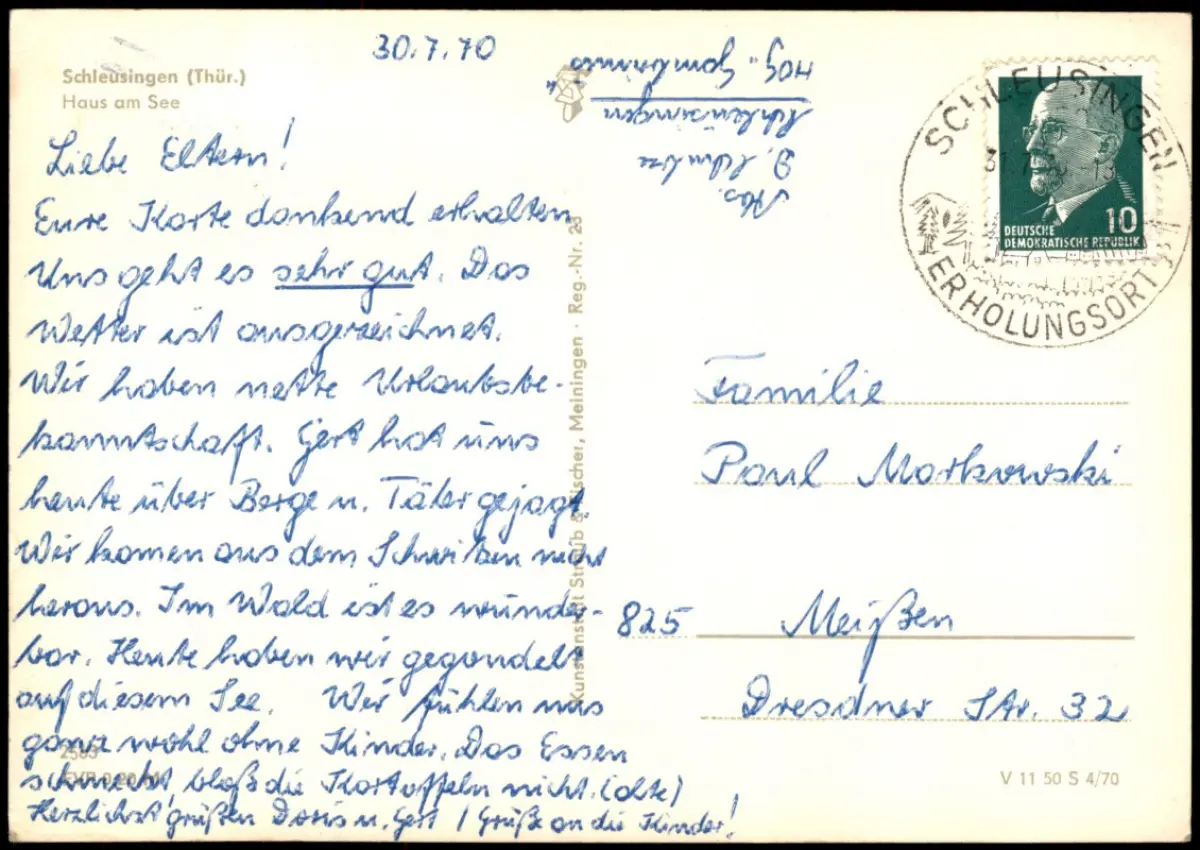 Schleusingen (Thür.)
Haus am See
30.7.70
Liebe Eltern!
Eure Karte dankend erhalten
Uns geht es sehr gut. Das
Wetter ist ausgezeichnet.
Wir haben nette Urlaubsbe-
kanntschaft. Gert hat uns
heute über Berge u. Täler gejagt.
Wir kamen aus dem Schwitzen nicht
heraus. Im Wald ist es wunder-
bar. Heute haben wir gegondelt
auf diesem See. Wir fühlen uns
ganz wohl ohne Kinder. Das Essen
schmeckt, bloß die Kartoffeln nicht. (alte)
Herzlichst grüßen Doris u. Gert / Grüße an die Kinder!
2503
Kunstanstalt Straub & Fischer, Meiningen · Reg.-Nr.
Abs.
D.
Schleusingen
HOG „Gambrinus“
SCHLEUSINGEN
ERHOLUNGSORT
10
DEUTSCHE
DEMOKRATISCHE REPUBLIK
Familie
Paul Markowski
825 Meißen
Dresdner Str. 32
V 11 50 S 4/70